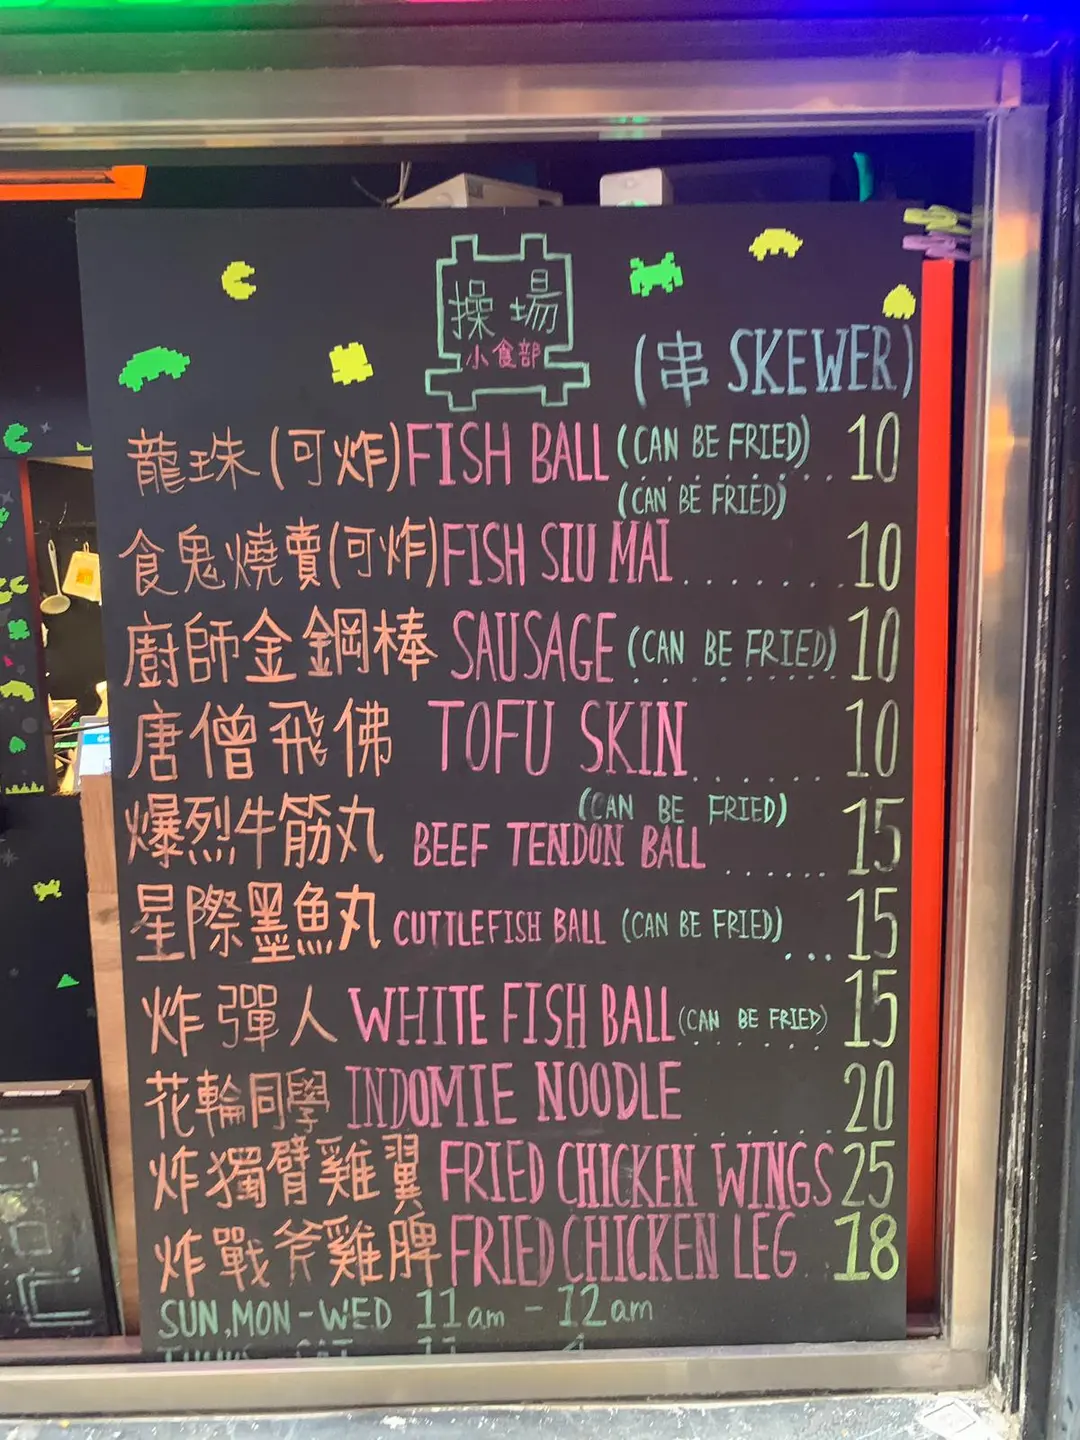 操場
小食部
(串 SKEWER)
龍珠(可炸)FISH BALL (CAN BE FRIED) 10
(CAN BE FRIED)
食鬼燒賣(可炸)FISH SIU MAI........10
廚師金鋼棒 SAUSAGE (CAN BE FRIED) 10
唐僧飛佛 TOFU SKIN.......10
(CAN BE FRIED)
爆烈牛筋丸 BEEF TENDON BALL......15
星際墨魚丸 CUTTLEFISH BALL (CAN BE FRIED)...15
炸彈人 WHITE FISH BALL (CAN BE FRIED) 15
花輪同學 INDOMIE NOODLE 20
炸獨臂雞翼 FRIED CHICKEN WINGS 25
炸戰斧雞髀 FRIED CHICKEN LEG 18
SUN,MON-WED 11am - 12am